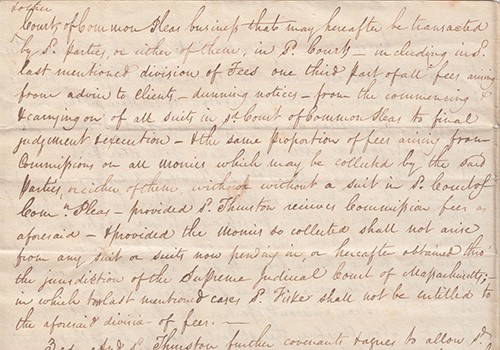 Court of Common Pleas business that may hereafter be transacted
by Sd. parties, or either of them, in Sd. Court — including in sd.
last mentioned division of Fees one third part of all fees arising
from advice to clients, — dunning notices — from the commencing
& carrying on of all suits in sd. Court of Common Pleas to final
judgment & execution — & the same proportion of fees arising from
Commissions on all monies which may be collected by the said
Parties, or either of them with or without a suit in Sd. Court of
Comn. Pleas — provided Sd. Thurston receives Commission fees as
aforesaid — & provided the monies so collected shall not arise
from any suit or suits now pending in, or hereafter obtained thro
the jurisdiction of the Supreme Judicial Court of Massachusetts;
in which two last mentioned cases Sd. Fiske shall not be entitled to
the aforesaid division of fees. —
Thurston further covenants & agrees to allow Sd.